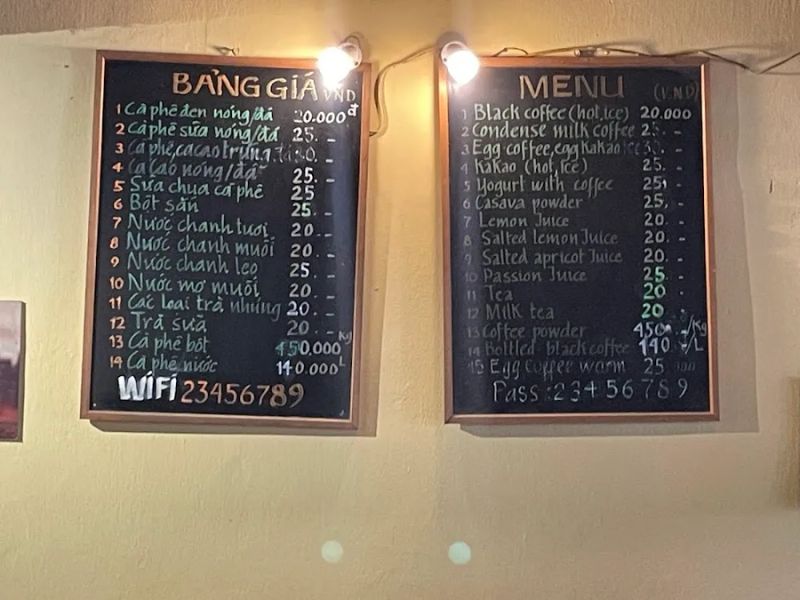 BẢNG GIÁ VND
1 Cà phê đen nóng/đá 20.000đ
2 Cà phê sữa nóng/đá 25.-
3 Cà phê, cacao trứng 30.-
4 Ca Cao nóng/đá 25.-
5 Sữa chua cà phê 25
6 Bột sắn 25.-
7 Nước chanh tươi 20.-
8 Nước chanh muối 20.-
9 Nước chanh leo 25.-
10 Nước mơ muối 20.-
11 Các loại trà nhúng 20.-
12 Trà sữa 20.-
13 Cà phê bột 450.000Kg
14 Cà phê nước 140.000L
WiFi 23456789
MENU (V.N.D)
1 Black coffee (hot, ice) 20.000
2 Condense milk coffee 25.-
3 Egg coffee, egg kakao ice 30.-
4 Kakao (hot, ice) 25.-
5 Yogurt with coffee 25.-
6 Casava powder 25.-
7 Lemon Juice 20.-
8 Salted lemon Juice 20.-
9 Salted apricot Juice 20.-
10 Passion Juice 25.-
11 Tea 20.-
12 Milk tea 20.-
13 Coffee powder 450.-/Kg
14 Bottled black coffee 140.-/L
15 Egg Coffee warm 25
Pass: 23456789